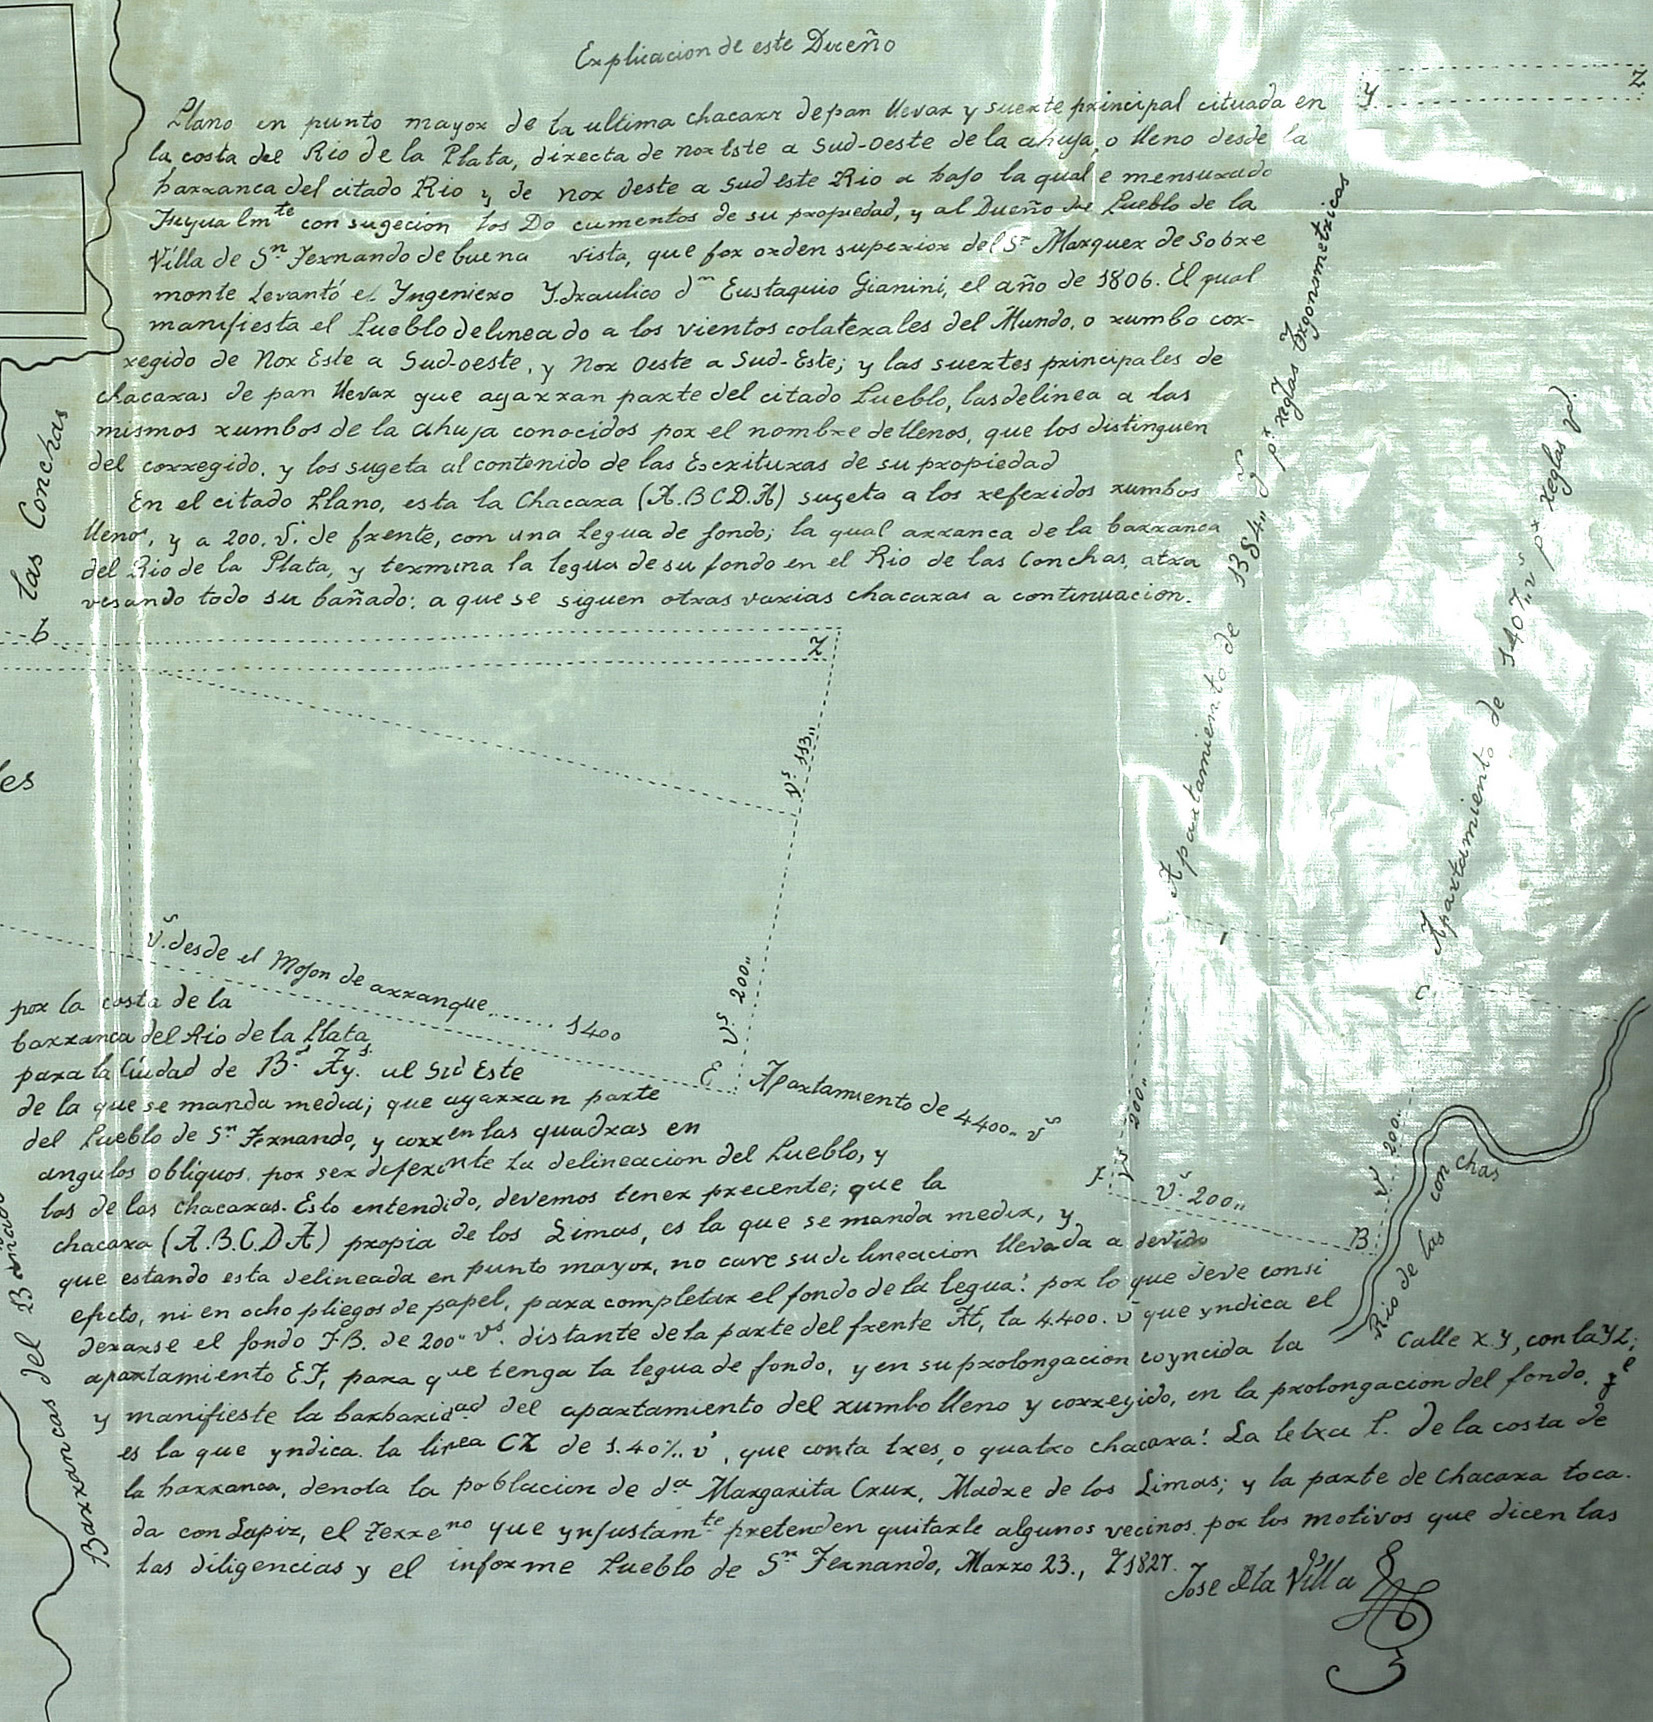 Explicacion de este Diceño
Plano en punto mayor de la ultima chacara de pan llevar y suerte principal cituada en
la costa del Rio de la Plata, directa de Nor Este a Sud-Oeste de la ahuja, o lleno desde la
barranca del citado Rio y de Nor deste a Sud este Rio a bajo la qual e mensurado
Yugualmte con sugecion los Documentos de su propiedad, y al Diceño del Pueblo de la
Villa de Sn Fernando de buena vista, que por orden superior del Sr Marquez de Sobre
monte Levantó el Yngeniero Ydraulico dn Eustaquio Gianini, el año de 1806. El qual
manifiesta el Pueblo delineado a los vientos colaterales del Mundo, o rumbo cor-
regido de Nor Este a Sud-oeste, y Nor Oeste a Sud-Este; y las suertes principales de
chacaras de pan llevar que agarran parte del citado Pueblo, las delinea a los
mismos rumbos de la ahuja conocidos por el nombre de llenos, que los distinguen
del corregido, y los sugeta al contenido de las Escrituras de su propiedad
En el citado Plano, esta la Chacara (A.B.C.D.A) sugeta a los referidos rumbos
llenos, y a 200. vs. de frente, con una legua de fondo; la qual arranca de la barranca
del Rio de la Plata, y termina la legua de su fondo en el Rio de las Conchas, atra
vesando todo su bañado: a que se siguen otras varias chacaras a continuacion.
y Z
las Conchas
b Z
es
vs 113"
vs. desde el Mojon de arranque ........ 1400
vs 200"
E Apartamiento de 4400" vs
Apartamiento de 1384" vs pr reglas trigonometricas
Apartamiento de 1407" vs pr reglas yd.
C
vs 200"
F vs. 200"
B vs 200"
Rio de las conchas
Barrancas del Bañado
por la costa de la
barranca del Rio de la Plata
para la Ciudad de Bs. Ays. al Sud Este
de la que se manda medir; que agarran parte
del Pueblo de Sn Fernando, y corren las quadras en
angulos obliquos, por ser deferente la delineacion del Pueblo, y
las de las chacaras. Esto entendido, devemos tener precente; que la
chacara (A.B.C.D.A) propia de los Limas, es la que se manda medir, y
que estando esta delineada en punto mayor, no cave su delineacion llevada a devido
efecto, ni en ocho pliegos de papel, para completar el fondo de la legua: por lo que deve consi
derarse el fondo F.B. de 200" vs. distante de la parte del frente AE, la 4.400. v que yndica el
apartamiento E.F, para que tenga la legua de fondo, y en su prolongacion coyncida la Calle X.Y, con la YZ;
y manifieste la barbaridad del apartamiento del rumbo lleno y corregido, en la prolongacion del fondo. qe
es la que yndica la linea CZ de 1.407.. vs, que conta tres, o quatro chacaras. La letra P. de la costa de
la barranca, denota la poblacion de da Margarita Cruz, Madre de los Limas; y la parte de Chacara toca.
da con Lapiz, el terreno que ynjustamte pretenden quitarle algunos vecinos por los motivos que dicen las
las diligencias y el informe Pueblo de Sn Fernando, Marzo 23., 1827.
Jose dela Villa